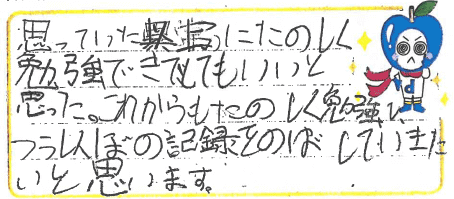 思っていた以上にたのしく
勉強できてとてもいいと
思った。これからもたのしく勉強し
つうしんぼの記録をのばしていきた
いと思います。